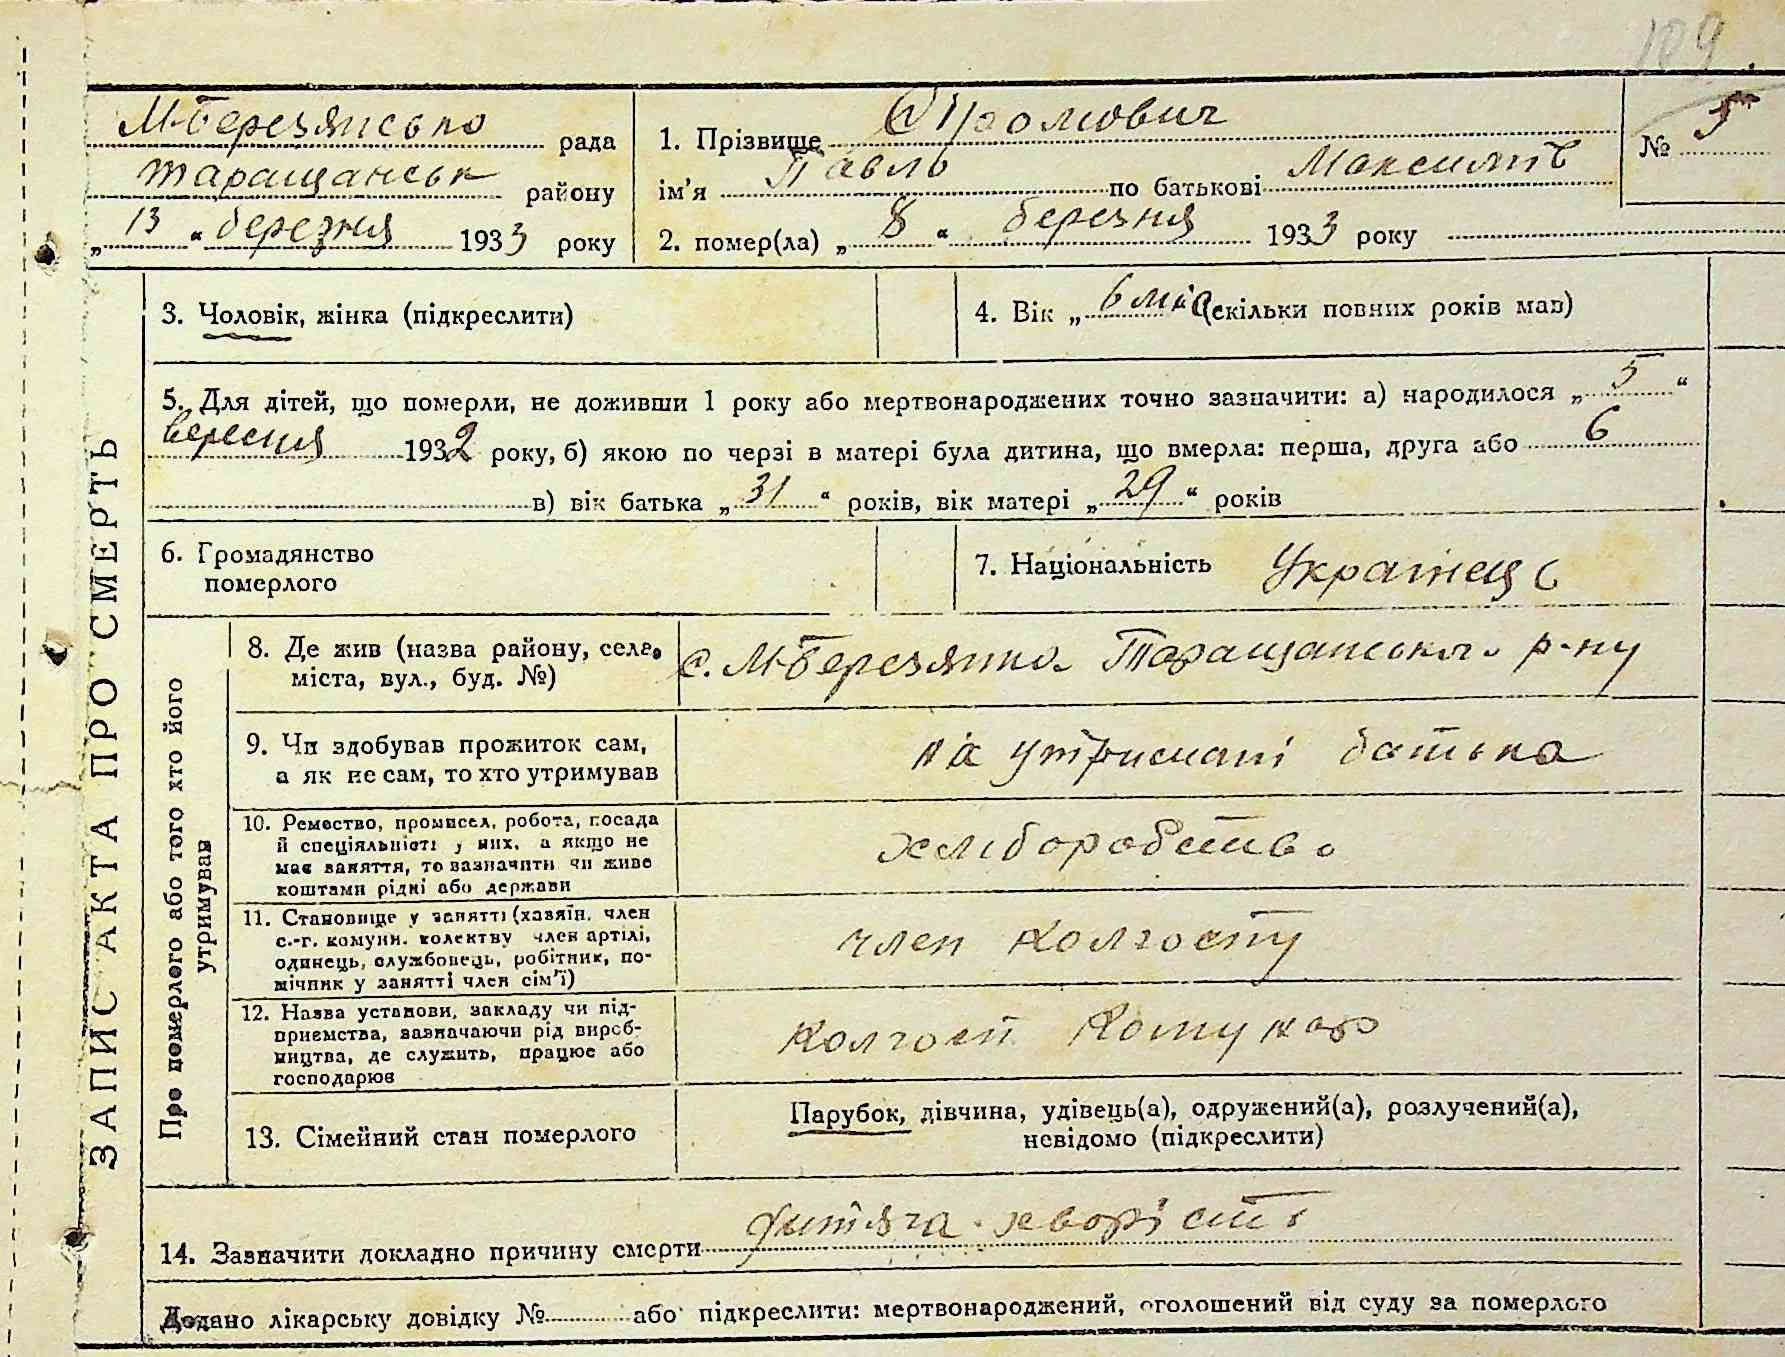 109
М-Березянсько рада
Таращанськ району
„13“ березня 1933 року
1. Прізвище
ім'я Павло по батькові Максимів
2. помер(ла) „8“ березня 1933 року
№ 5
ЗАПИС АКТА ПРО СМЕРТЬ
3. Чоловік, жінка (підкреслити)
4. Вік „6 міс (скільки повних років мав)
5. Для дітей, що померли, не доживши 1 року або мертвонароджених точно зазначити: а) народилося „5“
вересня 1932 року, б) якою по черзі в матері була дитина, що вмерла: перша, друга або 6
в) вік батька „31“ років, вік матері „29“ років
6. Громадянство
померлого
7. Національність Українець
Про померлого або того хто його
утримував
8. Де жив (назва району, села,
міста, вул., буд. №)
с. М-Березянка Таращанського р-ну
9. Чи здобував прожиток сам,
а як не сам, то хто утримував
на утримані батька
10. Ремество, промисел, робота, посада
й спеціяльність у них, а якщо не
має заняття, то вазначити чи живе
коштами рідні або держави
хліборобство
11. Становище у занятті (хазяїн, член
с.-г. комуни, колектву член артілі,
одинець, службовець, робітник, по-
мічник у занятті член сім'ї)
член колгоспу
12. Назва установи, закладу чи під-
приємства, зазначаючи рід вироб-
ництва, де служить, працює або
господарює
колгосп
13. Сімейний стан померлого
Парубок, дівчина, удівець(а), одружений(а), розлучений(а),
невідомо (підкреслити)
14. Зазначити докладно причину смерти дитяча хворість
Додано лікарську довідку № або підкреслити: мертвонароджений, оголошений від суду за померлого